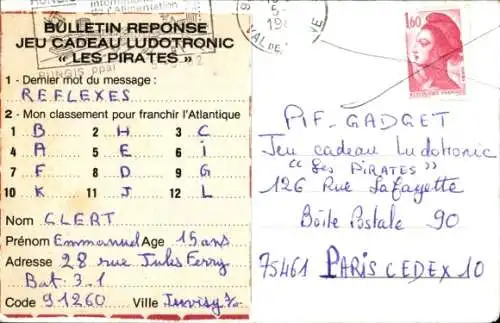 l'Alimentation
RUNGIS ppal
VAL DE
BULLETIN REPONSE
JEU CADEAU LUDOTRONIC
« LES PIRATES »
1 - Dernier mot du message :
REFLEXES
2 - Mon classement pour franchir l'Atlantique
1 B 2 H 3 C
4 A 5 E 6 i
7 F 8 D 9 G
10 K 11 J 12 L
Nom CLERT
Prénom Emmanuel Age 15 ans
Adresse 28 rue Jules Ferry
Bat. 3.1
Code 91260 Ville Juvisy
1,60
PIF-GADGET
Jeu cadeau Ludotronic
"Les PIRATES"
126 Rue Lafayette
Boîte Postale 90
75461 PARIS CEDEX 10